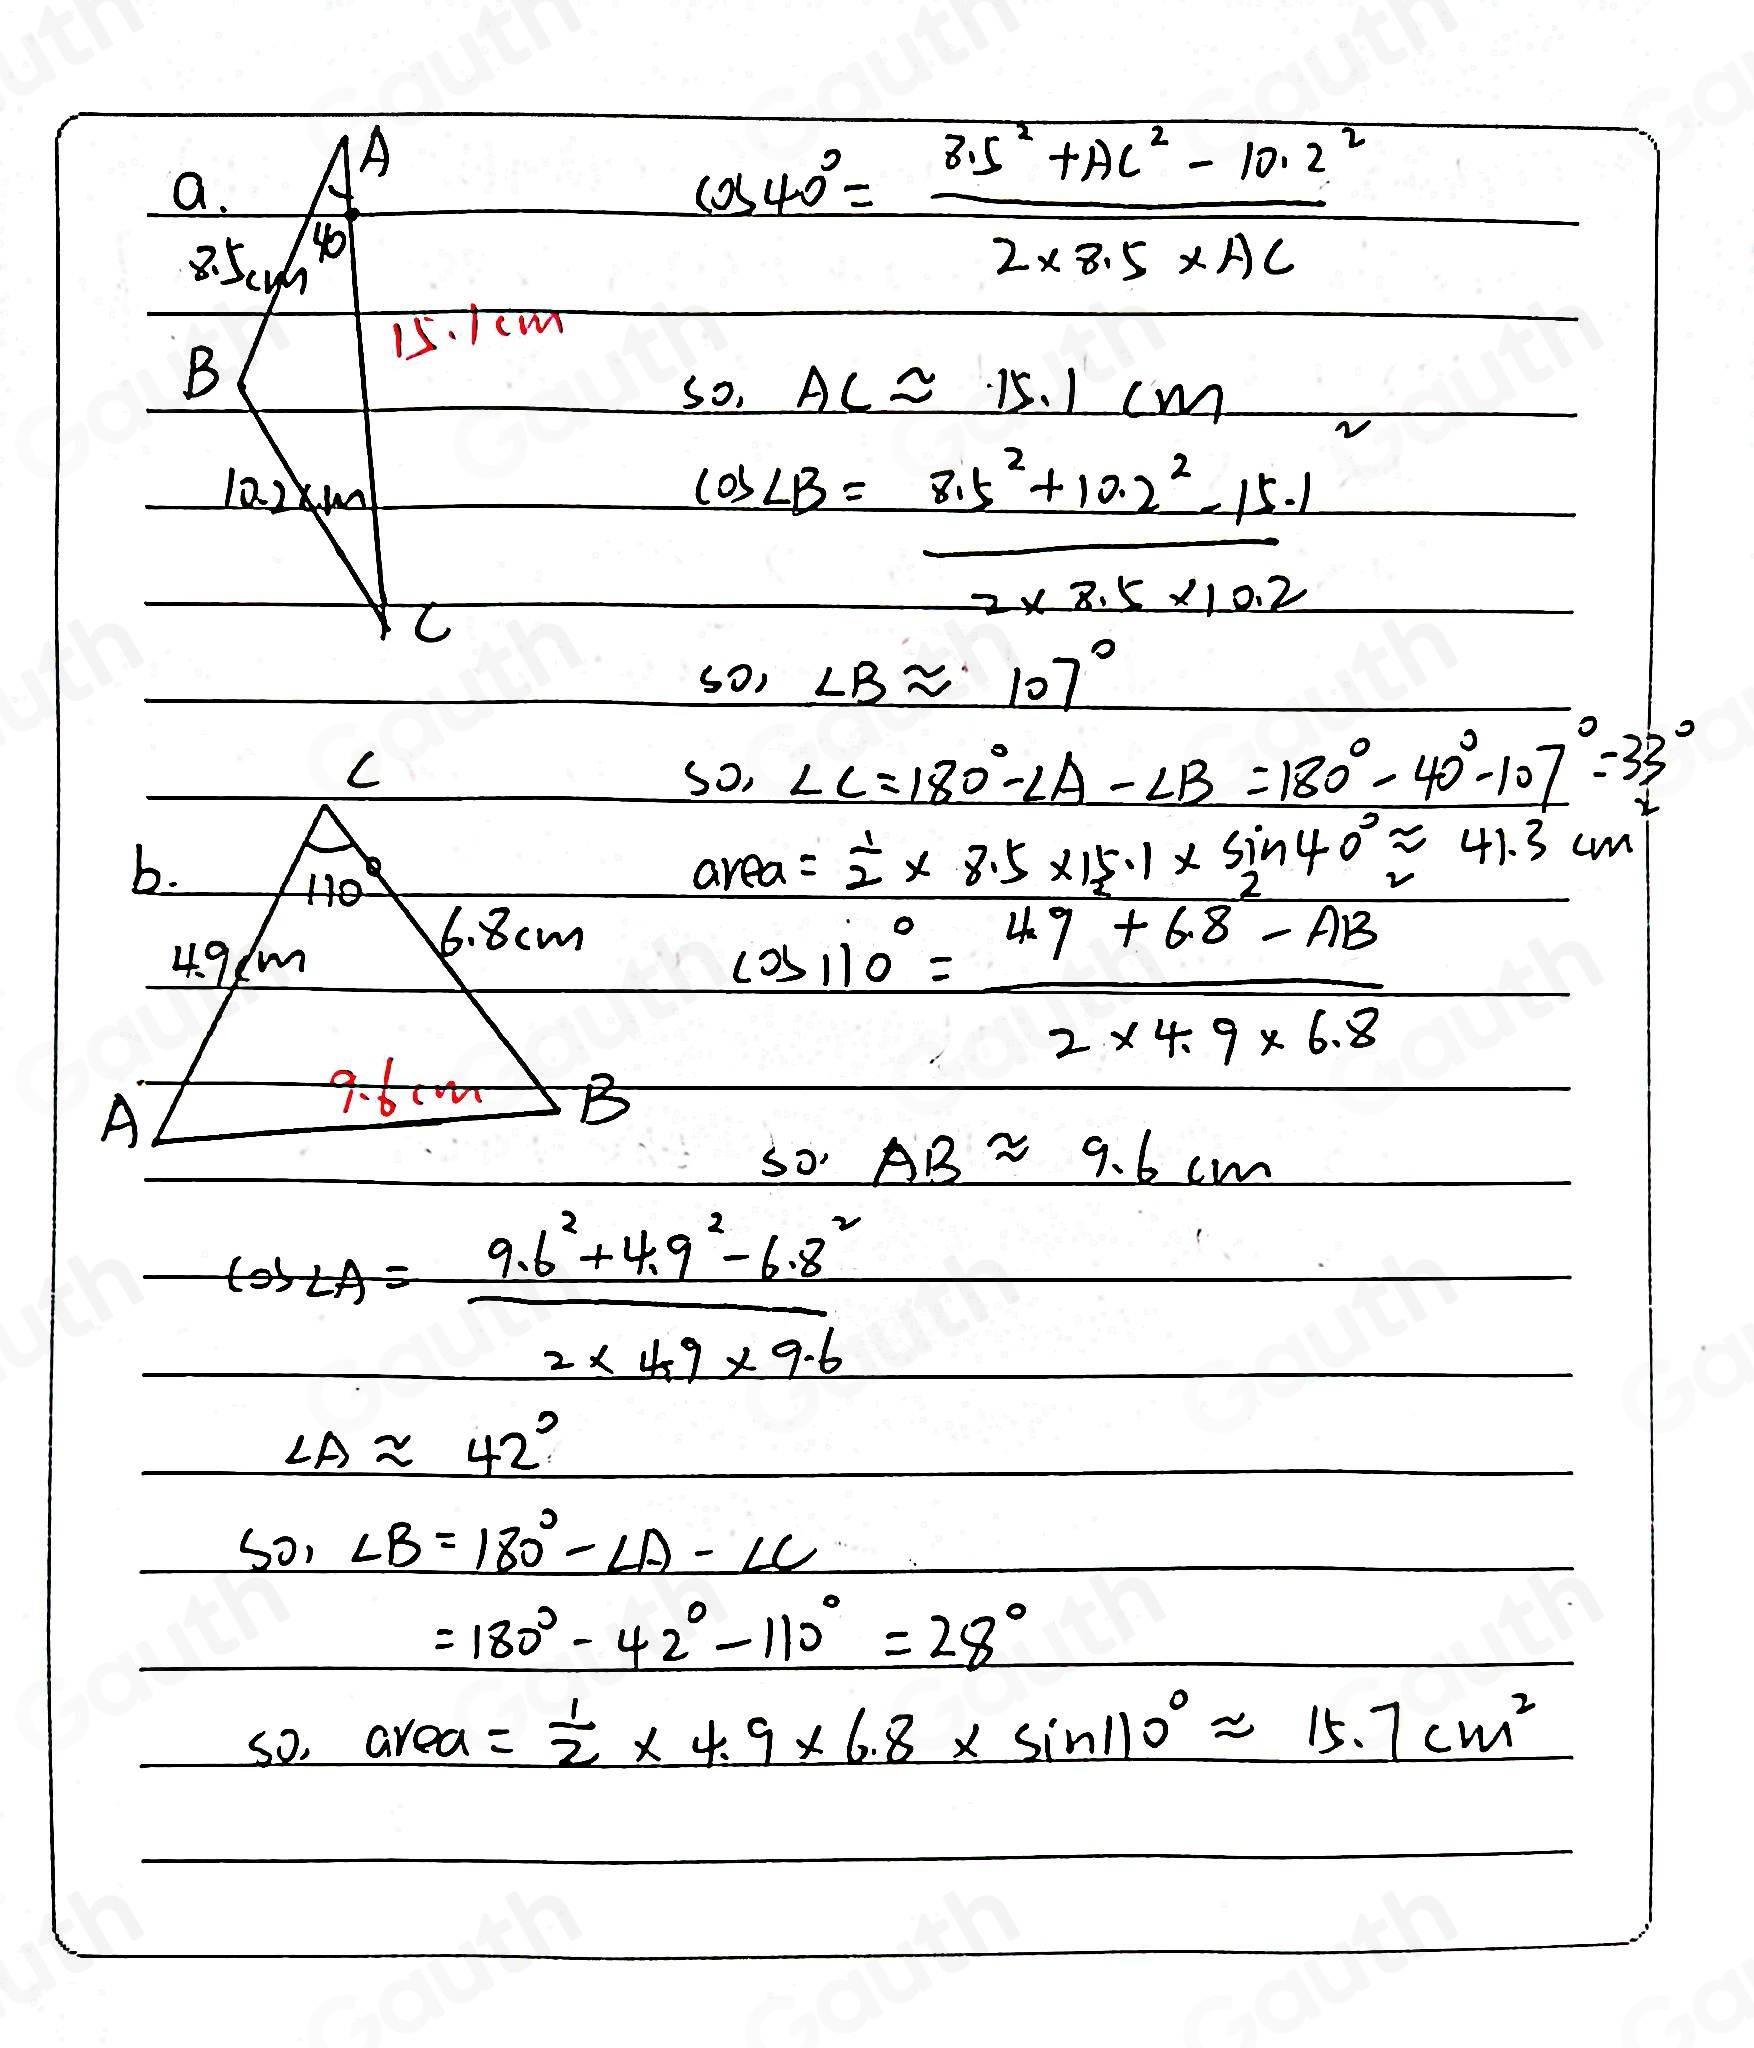 a.
A
40
8.5cm
15.1cm
B
10.2cm
C
cos40° = (8.5² + AC² - 10.2²) / (2 × 8.5 × AC)
so, AC ≈ 15.1 cm
cos∠B = (8.5² + 10.2² - 15.1²) / (2 × 8.5 × 10.2)
so, ∠B ≈ 107°
so, ∠C = 180° - ∠A - ∠B = 180° - 40° - 107° = 33°
area = 1/2 × 8.5 × 15.1 × sin40° ≈ 41.3 cm²
b.
C
110
4.9cm
6.8cm
9.6cm
A
B
cos110° = (4.9² + 6.8² - AB²) / (2 × 4.9 × 6.8)
so. AB ≈ 9.6 cm
cos∠A = (9.6² + 4.9² - 6.8²) / (2 × 4.9 × 9.6)
∠A ≈ 42°
so, ∠B = 180° - ∠A - ∠C
= 180° - 42° - 110° = 28°
so, area = 1/2 × 4.9 × 6.8 × sin110° ≈ 15.7 cm²
Gauth